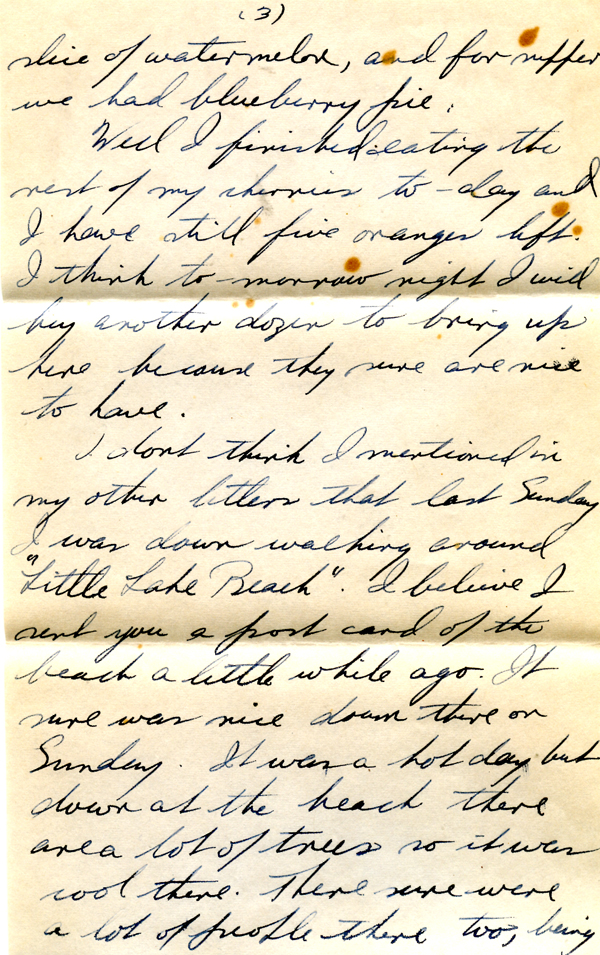 (3)
slice of watermelon, and for supper
we had blueberry pie.
Well I finished eating the
rest of my cherries to-day and
I have still five oranges left.
I think to-morrow night I will
buy another dozen to bring up
here because they sure are nice
to have.
I dont think I mentioned in
my other letters that last Sunday
I was down walking around
"Little Lake Beach". I believe I
sent you a post card of the
beach a little while ago. It
sure was nice down there on
Sunday. It was a hot day but
down at the beach there
are a lot of trees so it was
cool there. There sure were
a lot of people there too, being